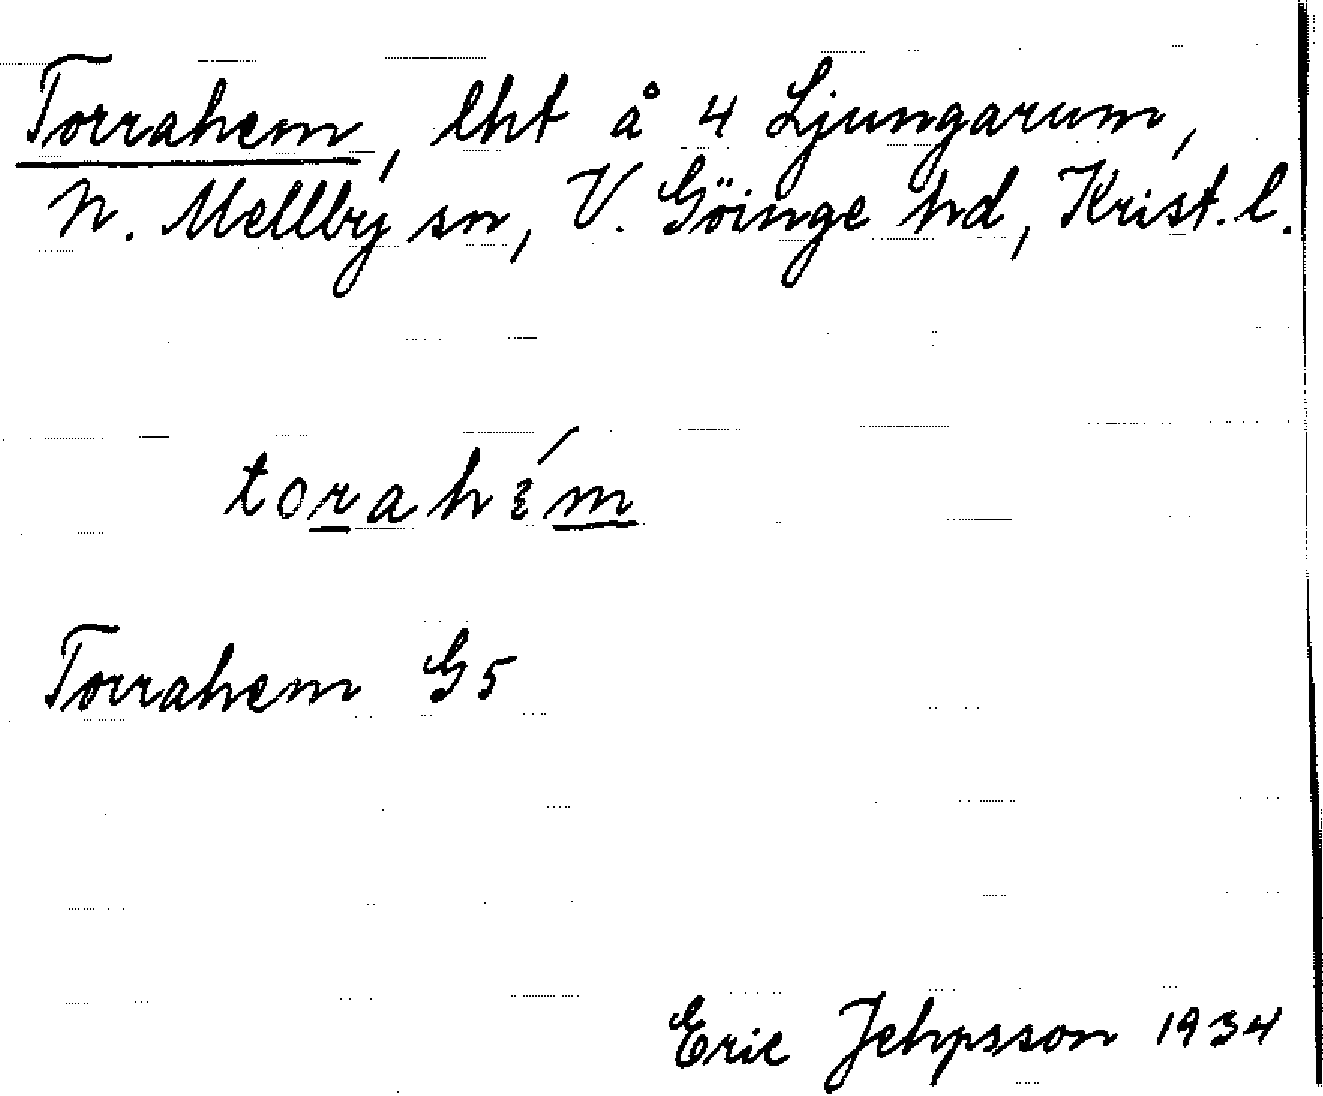 Torrahem, lht å 4 Ljungarum,
N. Mellby sn, V. Göinge hd, Krist. l.
torahɛ́m
Torrahem G5
Eric Jehpsson 1934